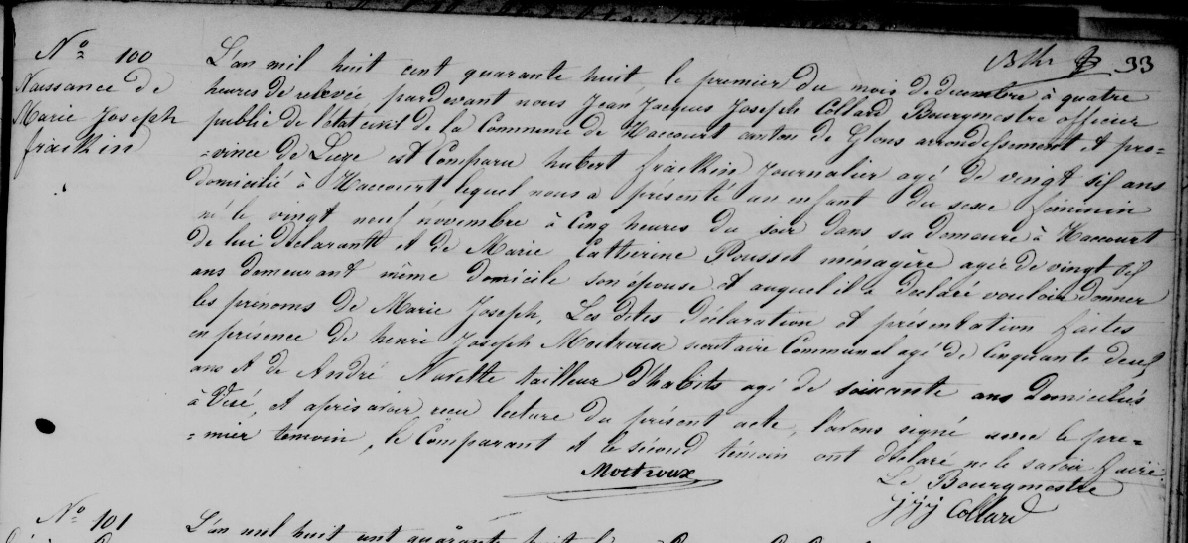 33
N° 100
Naissance de
Marie Joseph
fraikin
L'an mil huit cent quarante huit, le premier du mois de decembre à quatre
heures de relevée, pardevant nous Jean Jacques Joseph Collard Bourgmestre officier
public de l'état civil de la Commune de Haccourt canton de Glons arrondissement et pro=
=vince de Liege est Comparu hubert fraikin journalier agé de vingt six ans
domicilié à Haccourt lequel nous a présenté un enfant du sexe féminin
né le vingt neuf novembre à Cinq heures du soir dans sa demeure à Haccourt
de lui déclarant et de Marie Catherine Pousset ménagère agée de vingt six
ans demeurant même domicile son épouse et auquel il a declaré vouloir donner
les prénoms de Marie Joseph, Les dites déclaration et présentation faites
en présence de henri Joseph Moitroux secretaire Communal agé de Cinquante deux
ans et de André Navette tailleur d'habits agé de soixante ans domiciliés
à Visé, et après avoir reçu lecture du présent acte, l'avons signé avec le pre=
=mier témoin, le Comparant et le sécond témoin ont déclaré ne le savoir faire.
Moitroux
Le Bourgmestre
JJJ Collard
N° 101
L'an mil huit cent quarante huit